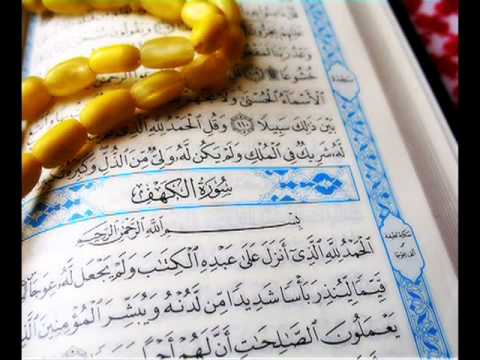 خُشُوعًا
الْأَسْمَاءُ الْحُسْنَىٰ وَلَا
بَيْنَ ذَٰلِكَ سَبِيلًا ١١٠ وَقُلِ الْحَمْدُ لِلَّهِ
لَّهُ شَرِيكٌ فِي الْمُلْكِ وَلَمْ يَكُن لَّهُ وَلِيٌّ مِّنَ الذُّلِّ وَكَبِّرْهُ
سُورَةُ الْكَهْفِ
بِسْمِ اللَّهِ الرَّحْمَٰنِ الرَّحِيمِ
الْحَمْدُ لِلَّهِ الَّذِي أَنزَلَ عَلَىٰ عَبْدِهِ الْكِتَٰبَ وَلَمْ يَجْعَل لَّهُ عِوَجَا
قَيِّمًا لِّيُنذِرَ بَأْسًا شَدِيدًا مِّن لَّدُنْهُ وَيُبَشِّرَ الْمُؤْمِنِينَ الَّذِينَ
يَعْمَلُونَ الصَّٰلِحَٰتِ أَنَّ لَهُمْ أَجْرًا